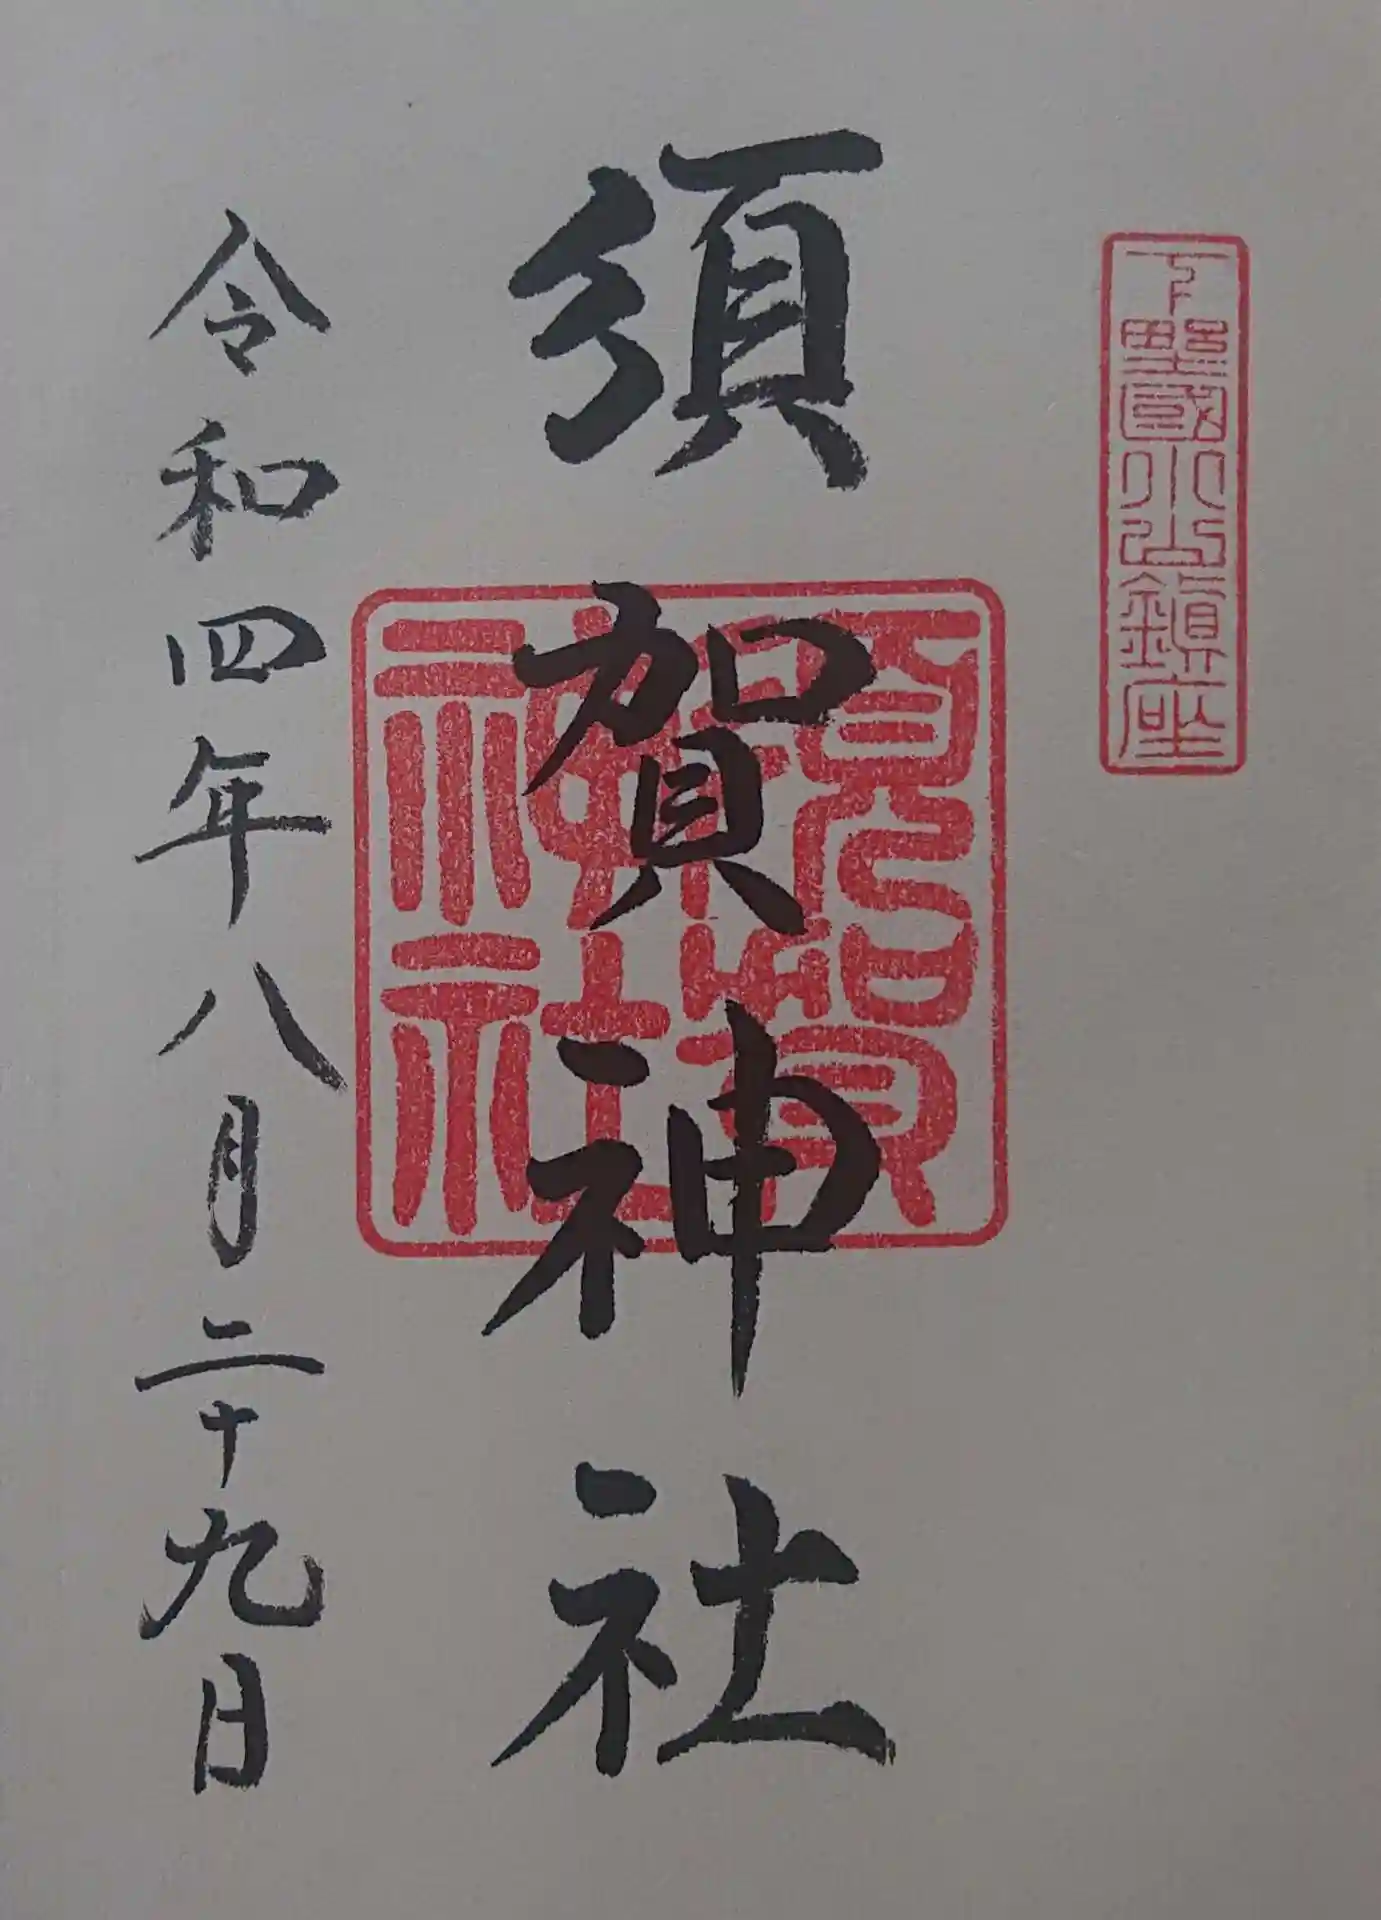 下野國小山鎮座
須賀神社
須賀神社
令和四年八月二十九日